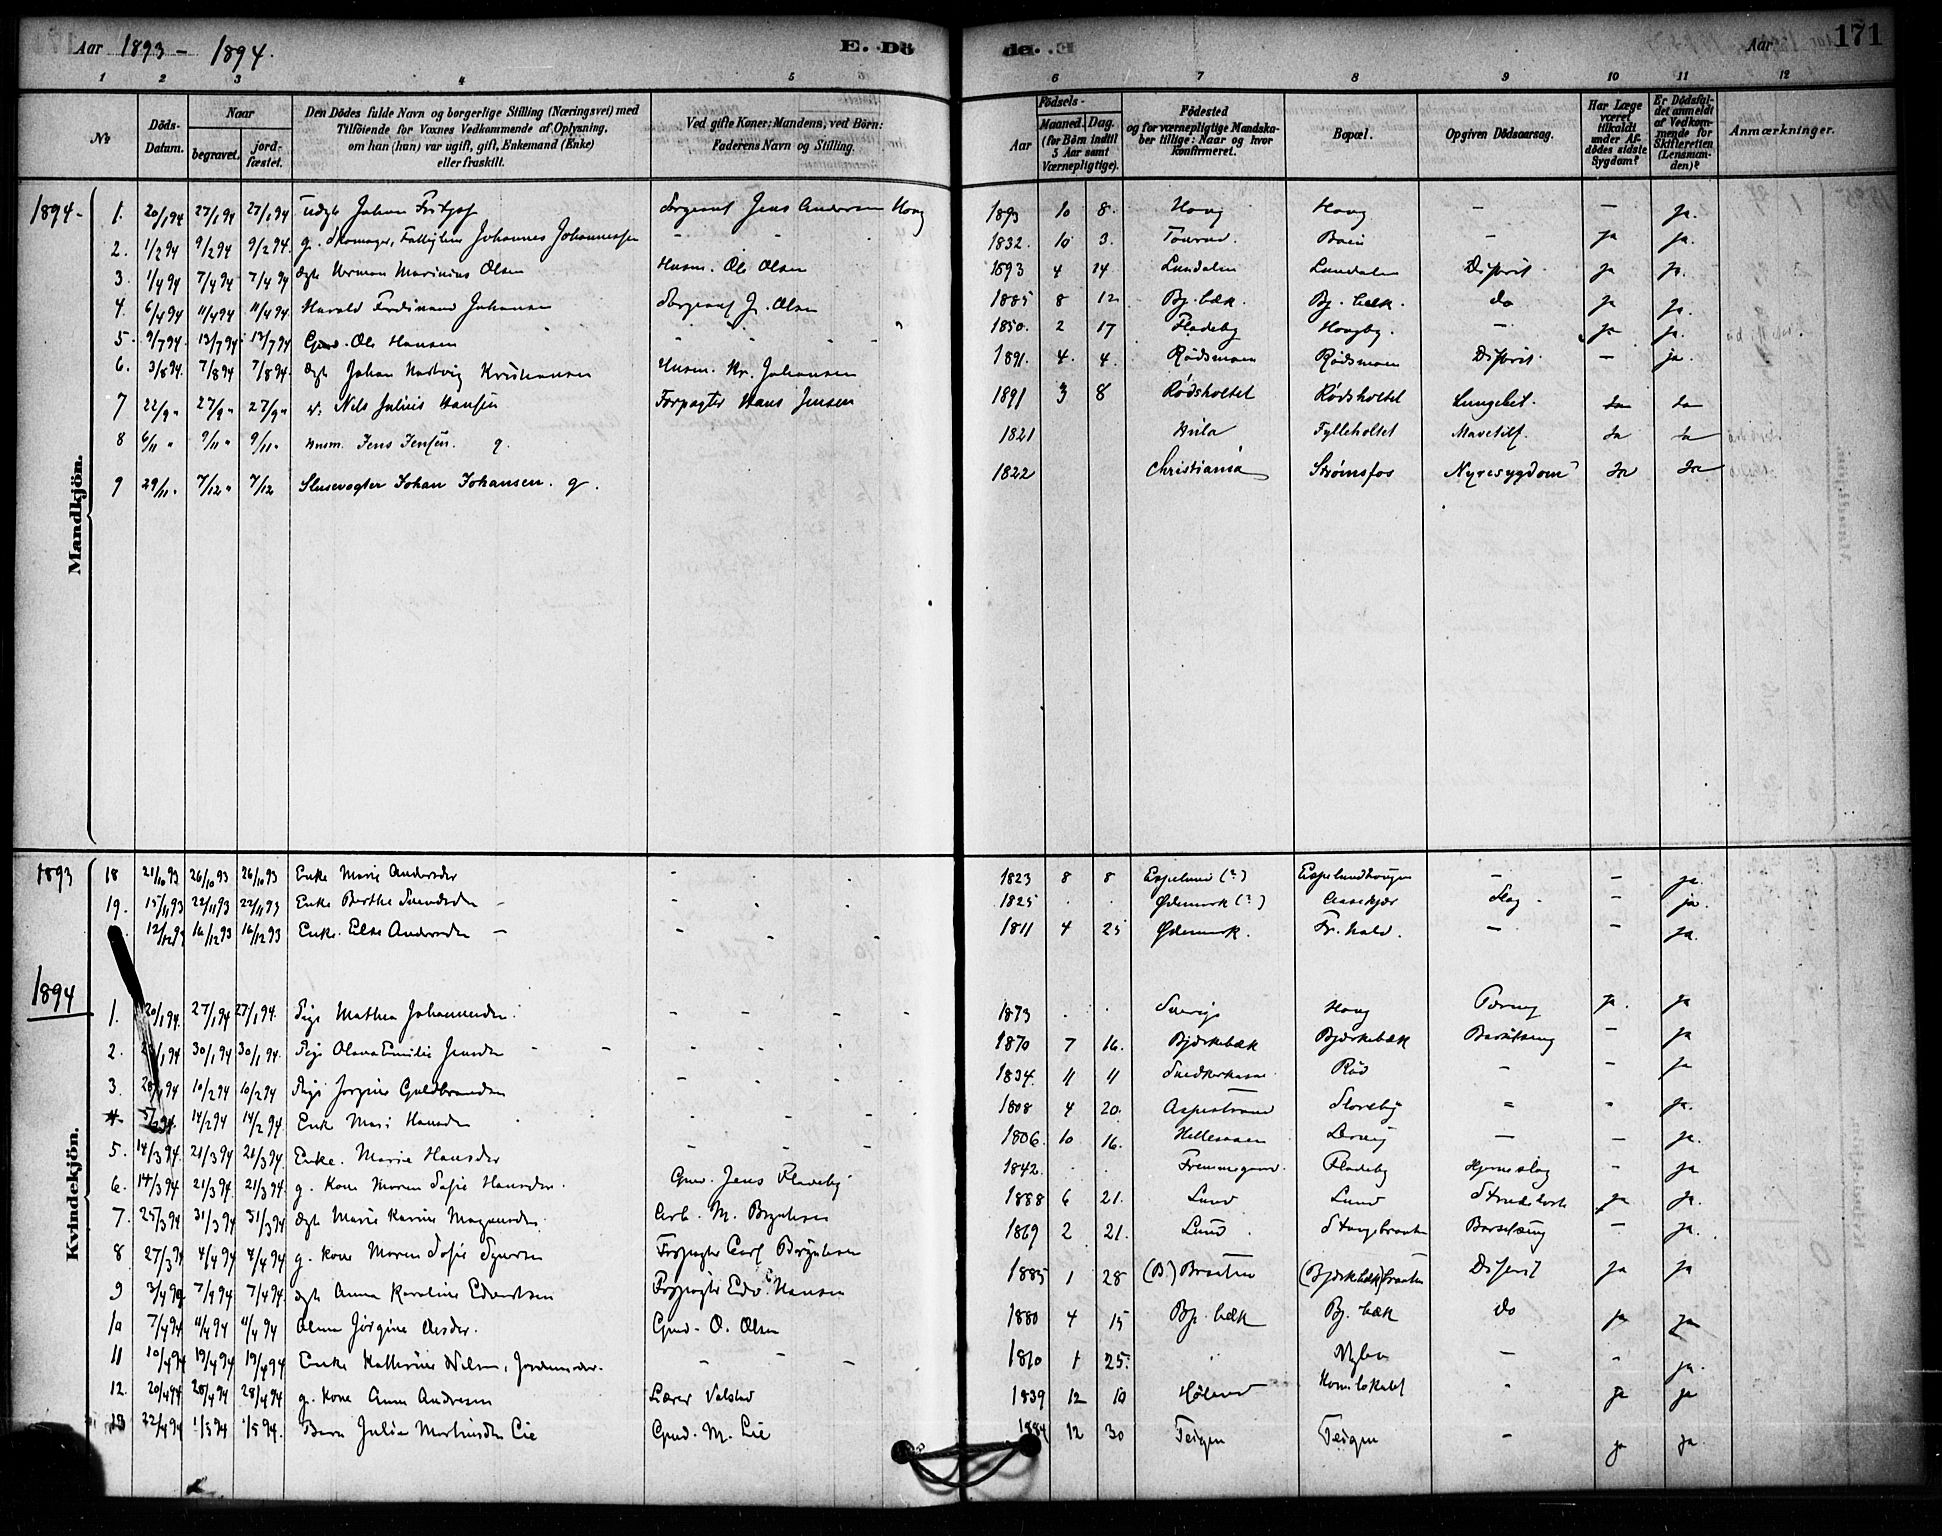 Aar 1893 - 1894.
E. Döde.
Aar
171
1 2 3 4 5 6 7 8 9 10 11 12
№ Döds-Datum. Naar begravet. jordfæstet. Den Dödes fulde Navn og borgerlige Stilling (Næringsvei) med Tilföiende for Voxnes Vedkommende af Oplysning, om han (hun) var ugift, gift, Enkemand (Enke) eller fraskilt. Ved gifte Koner: Mandens, ved Börn: Faderens Navn og Stilling.
Födsels- Aar Maaned. Dag. (for Börn indtil 5 Aar samt Værnepligtige). Födested og for værnepligtige Mandskaber tillige: Naar og hvor konfirmeret. Bopæl. Opgiven Dödsaarsag. Har Læge været tilkaldt under Afdödes sidste Sygdom? Er Dödsfaldet anmeldt af Vedkommende for Skifteretten (Lensmanden)? Anmærkninger.
Mandkjön.
1894 - 1. 20/1 94 27/1 94 27/1 94 Johan Fritjof Sergeant Jens Andersen Houg 1893 10 8. Houg Houg - - ja.
2. 1/2 94 9/2 94 9/2 94. g. Skomager, Johannes Johannessen 1832. 10 3. - ja ja.
3. 1/4 94 7/4 94 7/4 94 ægte Herman Marinius Olsen Husm. Ole Olsen 1893 4 14. Lundalen Lundalen Difterit ja ja.
4. 6/4 94 11/4 94 11/4 94 Harald Ferdinand Johansen Sergeant J. Olsen 1885 8 12 Bj. bæk. Bj. bæk. do ja ja.
5. 9/7 94. 13/7 94 13/7 94 Gmd. Ole Hansen 1850. 2 17 Fladeby Hougby. - ja ja.
6. 3/8 94. 7/8 94 7/8 94. ægte Johan Hartvig Kristiansen Husm. Kr. Johansen 1891. 4. 4. Rødsmoen Rødsmoen Difterit. - ja.
7 22/9 " 27/9 " 27/9 " Nils Julius Hansen Forpagter Hans Jensen 1891 3 8 Rødsholtet Rødsholtet Lungebet. Ja Ja
8 6/11 " 9/11 " 9/11 " Husm. Jens Jensen. g. 1821 Fylleholtet Ja Ja
9 29/11 " 7/12 " 7/12 Slusevogter Johan Johansen. g. 1822 Christiania Strømsfos Nyresygdom Ja Ja
Kvindekjön.
1893 18 21/10 93 26/10 93 26/10 93 Enke Marie Andersdr 1823 8 8 Espelund (?) Espelundhougen - - ja.
19. 15/11 93 22/11 93 22/11 93 Enke Berthe Svendsdr - 1825 Ødemark (?) Slag - ja.
12/12 93 16/12 93 16/12 93 Enke. Else Andersdr - 1811 4 25 Ødemark. Fr. hald. - - ja.
1894
1. 20/1 94. 27/1 94 27/1 94. Pige Mathea Johannesdr. 1873 Sverige Houg Tæring ja. ja
2. 30/1 94 30/1 94. Pige Olava Emilie Jensdr 1870 7 16. Bjørkebæk Bjørkebæk Barselseng - ja
3. 10/2 94 10/2 94 Pige Jorgine Guldbrandsdr 1834. 11 11 Snedkerhaven Rød - - ja
4. 5/2 94. 14/2 94 14/2 94. Enke Mari Hansdr 1808 4 20. Aspestrand Sloreby ja.
5. 14/3 94. 21/3 94 21/3 94. Enke. Marie Hansdr 1806. 10 16. Hellesaaen - - ja.
6. 14/3 94 21/3 94. 21/3 94 g. Kone Maren Sofie Hansdr. Gmd. Jens Fladeby 1842. Fladeby Hjerneslag - ja
7. 25/3 94 31/3 94 31/3 94 ægte Marie Karine Magnusdr. Arb. M. 1888 6 21. Lund Lund Strubehoste ja ja.
8 27/3 94 4/4 94 4/4 94 g. Kone Maren Sofie Forpagter Carl 1869 2 21. Lund Barselseng - ja.
9 3/4 94 7/4 94 7/4 94. ægte Anna Karoline Edvardsen Forpagter Edv. Hansen 1885 1 28 (B.) Braaten (Bjørkebæk) braaten Difterit ja ja
10 7/4 94 11/4 94 11/4 94 Jørgine Olesdr. Gmd. O. Olsen 1880 4 15 Bj. bæk Bj. bæk do ja ja
11 10/4 94 19/4 94 19/4 94 Enke Kathrine Nilsen, 1810 1 25. - - ja.
12. 20/4 94 28/4 94 28/4 94 g. Kone Anna Andresen Lærer 1839 12 10 Høland ja ja
13 22/4 94 1/5 94 1/5 94. Barn Julie Martinsdr Lie Gmd. M. Lie 1884 12 30 Teigen Teigen - ja ja